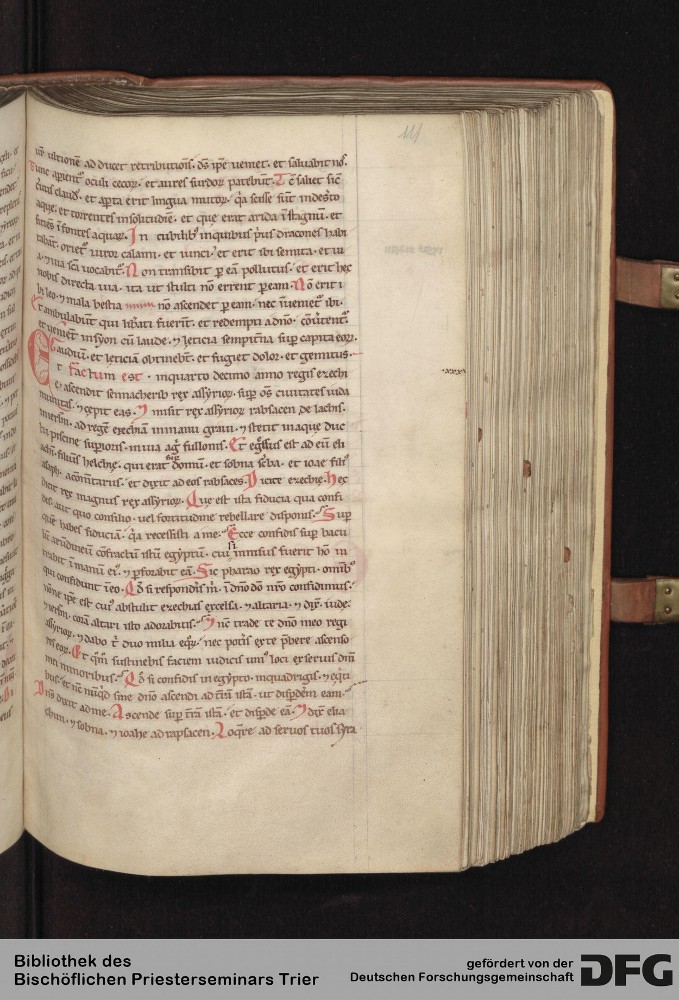 111
ur̄ ultionē ad ducet retributiōis. ds̄ ip̄e ueniet. et saluabit nos.
Tunc apient̉ oculi cecoꝝ. et aures surdoꝝ patebūt. Tc̄ saliet sic̄
ceruus claud̉. et apta erit lingua mutoꝝ. q̄a scisse sūt in deserto
aque. et torrentes in solitudine. et que erat arida ī stagnū. et
sitiēs ī fontes aquaꝝ. In cubilib̉ in quibus prỉus dracones habi
tabāt. oriet̉ uiror calami. et iunci. et erit ibi semita. et ui
a. ⁊ uia scā uocabit̉. Non transibit p eā pollutus. et erit hec
uobis directa uia. ita ut stulti nō errent p eam. Nō erit i
bi leo. ⁊ mala bestia nō ascendet p eam. nec īueniet̉ ibi.
Et ambulabunt qui libati fuerīt. et redempti a dn̄o. cōūtent̉.
et uenient in syon cū laude. ⁊ leticia sempitna sup capita eoꝝ.
Gaudiū. et leticiā obtinebt̄. et fugiet dolor. et gemitus.
Et factum est. in quarto decimo anno regis ezechi
e. ascendit sennacherib rex assyrioꝝ. sup om̄s ciuitates iuda
munitas. ⁊ cepit eas. ⁊ misit rex assyrioꝝ rabsacen de lachis.
in ierl̄m. ad regē ezechiā in manu graui. ⁊ stetit in aque duc
tu piscine supioris. in uia agri fullonis. Et egssus est ad eū eli
achī. filius helchie. qui erat sup domū. et sobna scba. et ioae filỉ
asaph. a cōmtarius. et dixit ad eos rabsaces. Dicite ezechie. Hec
dicit rex magnus rex assyrioꝝ. Que est ista fiducia qua confi
dis. aut quo consilio. uel fortitudine rebellare disponis. Sup
quē habes fiduciā. q̄a recessisti a me. Ecce confidis sup bacu
lū arūdineū cōfractū istū egyptū. cui si innisus fuerit hō in
trabit ī manū eỉ. ⁊ pforabit eā. Sic pharao rex egypti. omib̉
qui confidunt ī eo. Qd̄ si respondis m̄. ī dn̄o dō nr̄o confidimus.
Nōne ip̄e est cuỉ abstulit ezechias excelsa. ⁊ altaria. ⁊ dix̄. iude.
⁊ ierl̄m. corā altari isto adorabitis. ⁊ nc̄ trade te dn̄o meo regi
assyrioꝝ. ⁊ dabo t̄ duo milia eqꝝ. nec pot̄is ex te p̄bere ascenso
res eoꝝ. Et qm̄ sustinebis faciem iudicis unỉ loci ex seruis dn̄i
mei minoribus. Qd̄ si confidis in egypto. in quadrigis. ⁊ eq̄ti
bus. et nc̄ nūqd̄ sine dn̄o ascendi ad tr̄ā istā. ut dispdem eam.
Dn̄s dixit ad me. Ascende sup tr̄ā istā. et dispde eā. ⁊ dix̄ elia
chim. ⁊ sobna. ⁊ ioahe ad rapsacen. Loq̄re ad seruos tuos syra
Bibliothek des
Bischöflichen Priesterseminars Trier
gefördert von der
Deutschen Forschungsgemeinschaft
DFG